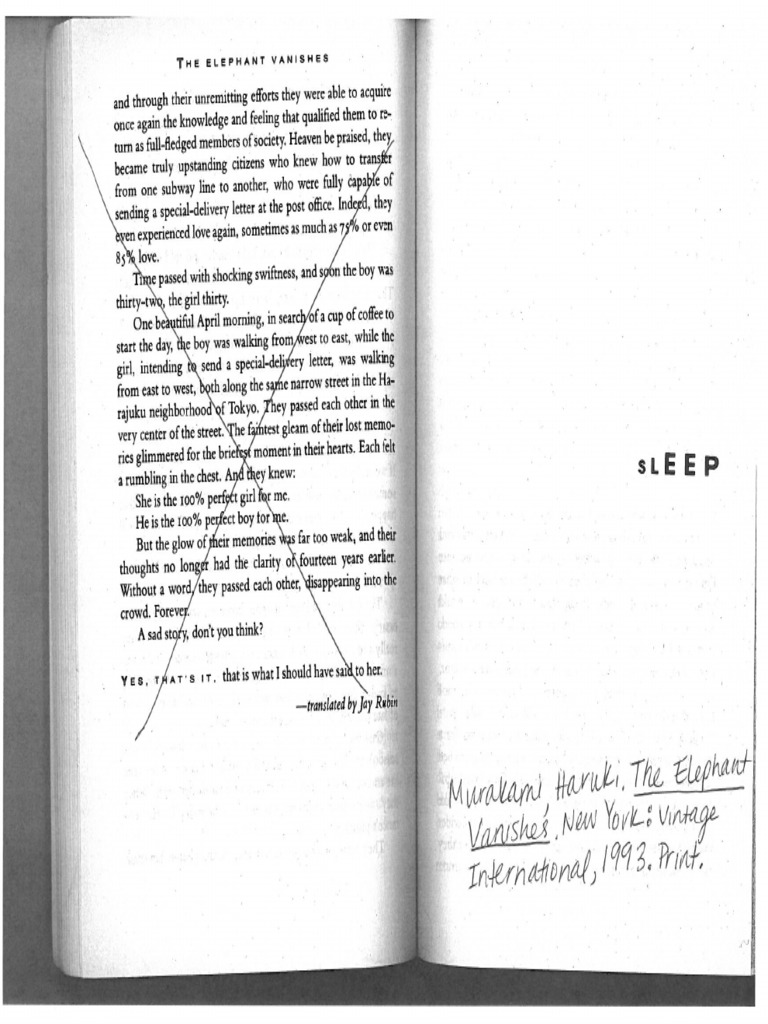 THE ELEPHANT VANISHES
and through their unremitting efforts they were able to acquire
once again the knowledge and feeling that qualified them to re-
turn as full-fledged members of society. Heaven be praised, they
became truly upstanding citizens who knew how to transfer
from one subway line to another, who were fully capable of
sending a special-delivery letter at the post office. Indeed, they
even experienced love again, sometimes as much as 75% or even
85% love.
Time passed with shocking swiftness, and soon the boy was
thirty-two, the girl thirty.
One beautiful April morning, in search of a cup of coffee to
start the day, the boy was walking from west to east, while the
girl, intending to send a special-delivery letter, was walking
from east to west, both along the same narrow street in the Ha-
rajuku neighborhood of Tokyo. They passed each other in the
very center of the street. The faintest gleam of their lost memo-
ries glimmered for the briefest moment in their hearts. Each felt
a rumbling in the chest. And they knew:
She is the 100% perfect girl for me.
He is the 100% perfect boy for me.
But the glow of their memories was far too weak, and their
thoughts no longer had the clarity of fourteen years earlier.
Without a word, they passed each other, disappearing into the
crowd. Forever.
A sad story, don't you think?
YES, THAT'S IT, that is what I should have said to her.
—translated by Jay Rubin
SLEEP
Murakami, Haruki. The Elephant
Vanishes. New York: Vintage
International, 1993. Print.